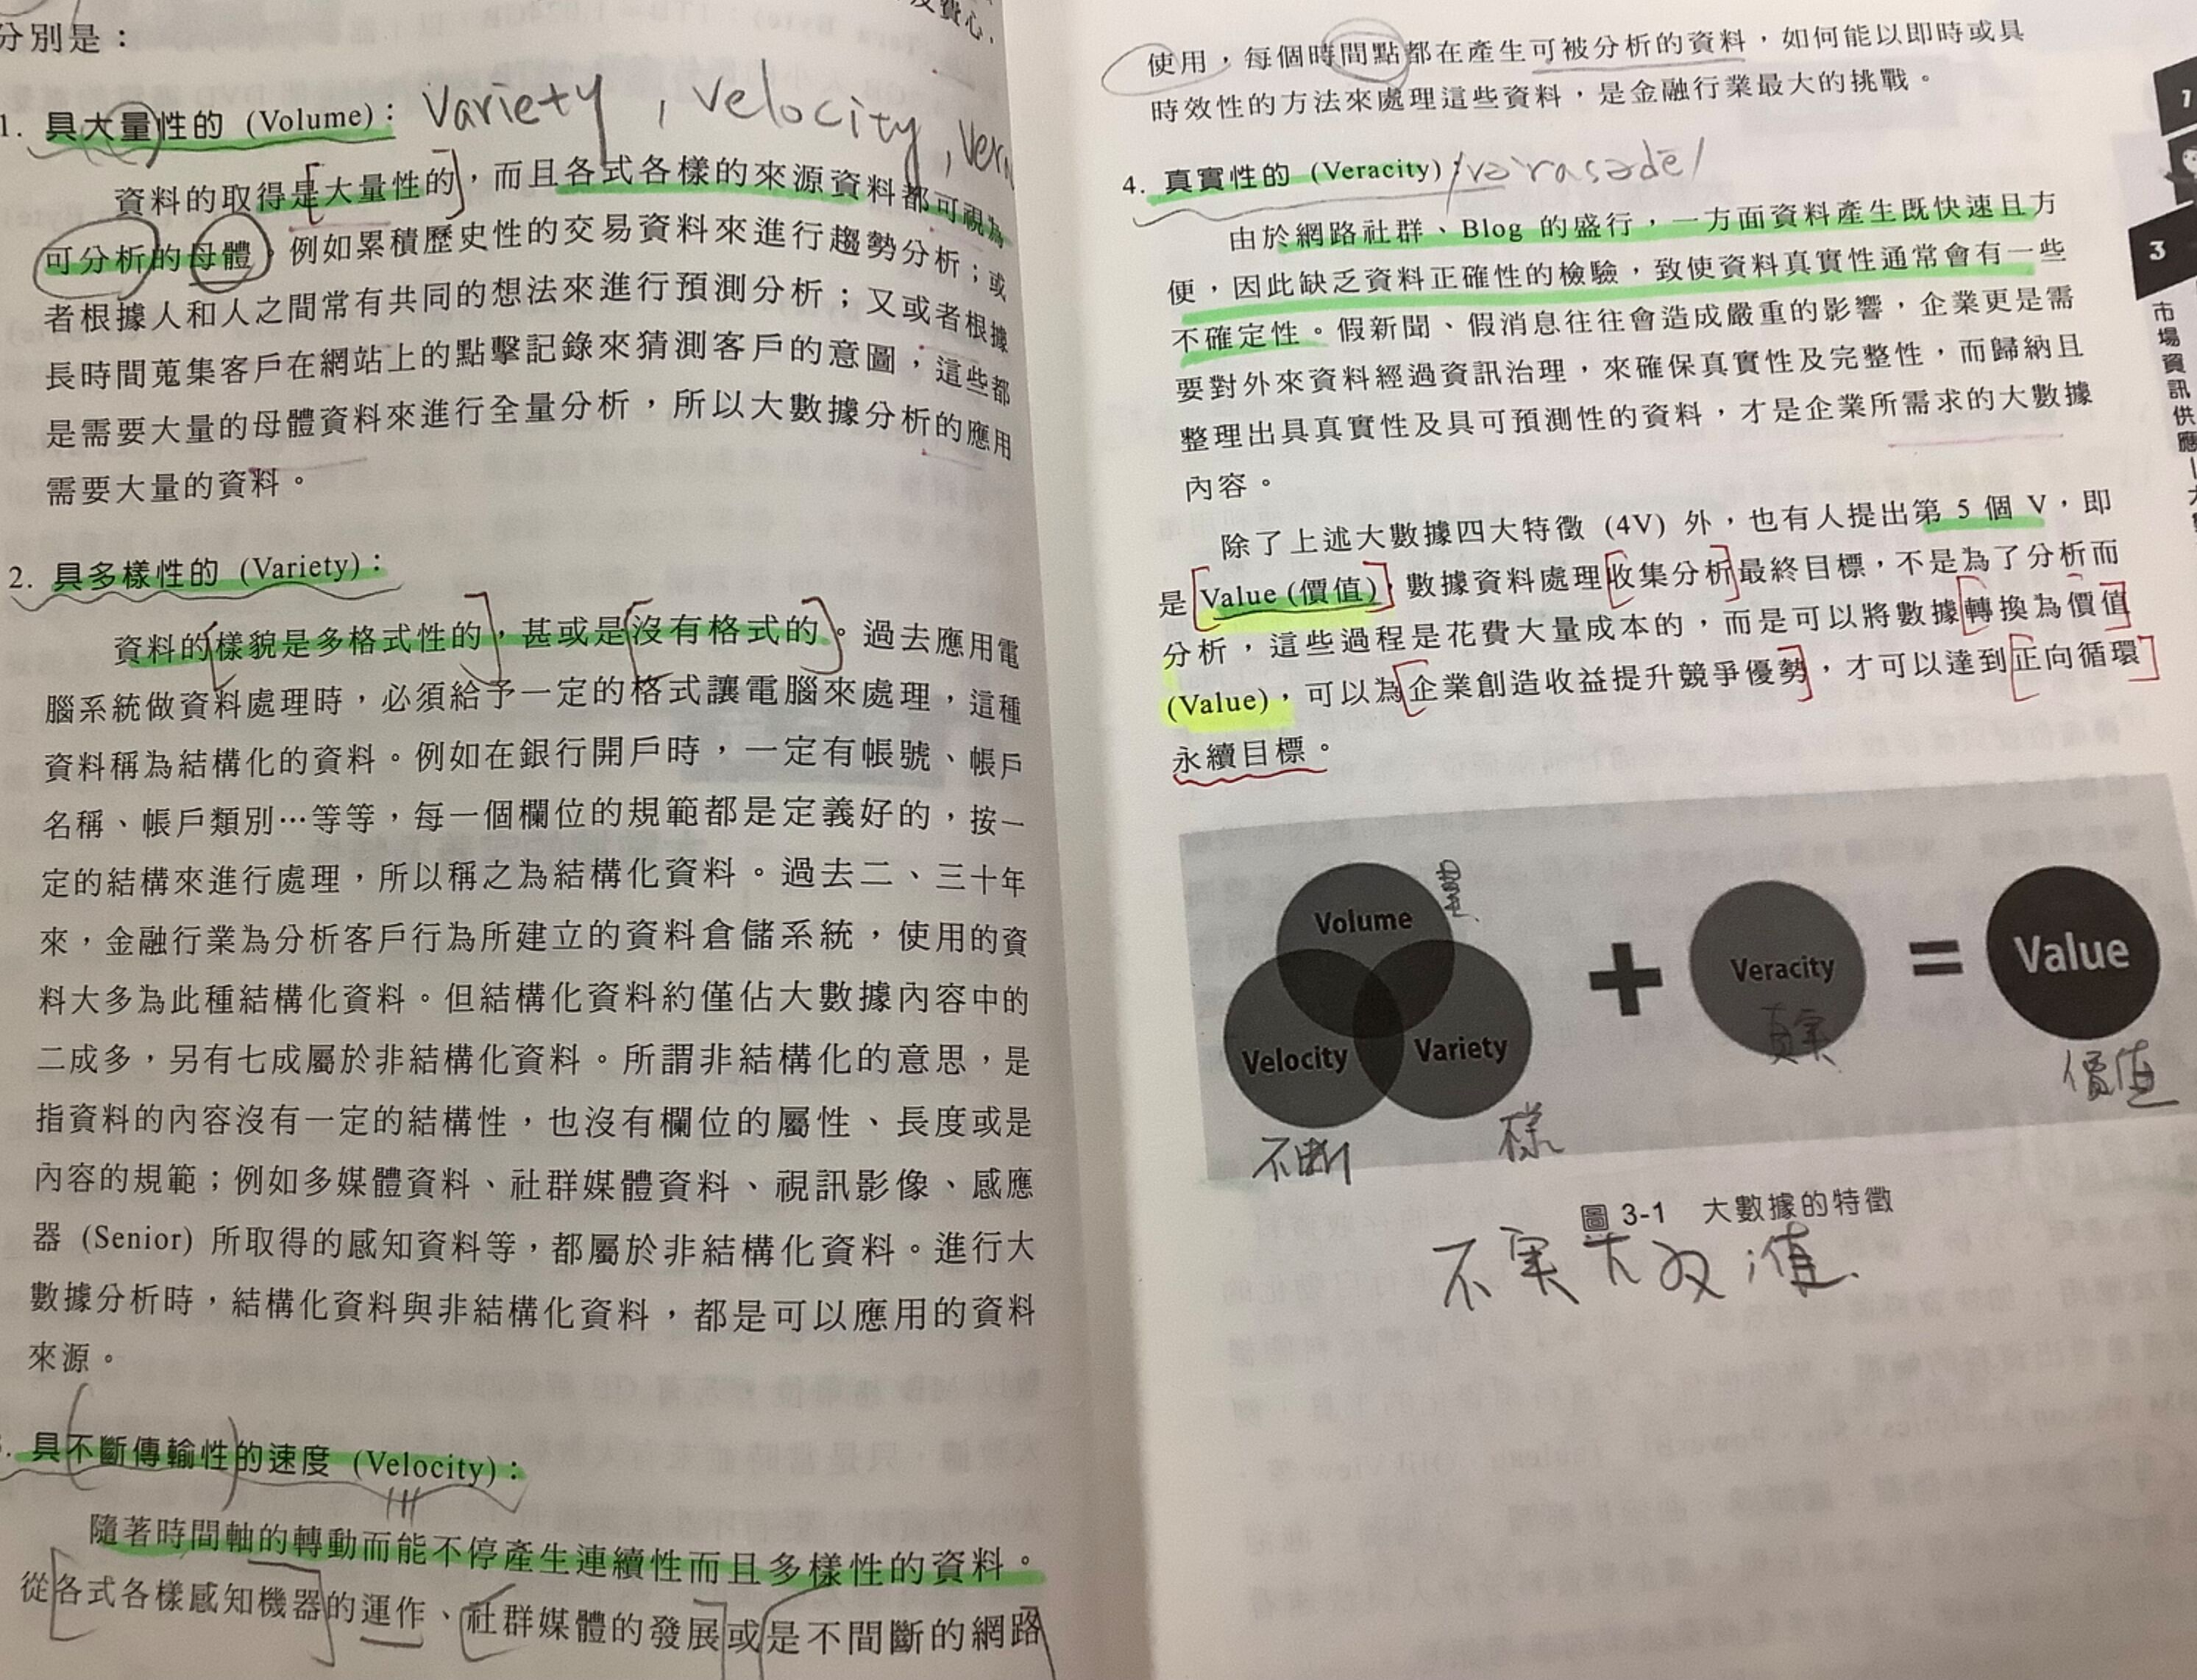 分別是：
費心，
1. 具大量性的 (Volume)：Variety, Velocity, Ver
資料的取得是[大量性的]，而且各式各樣的來源資料都可視為
可分析的母體，例如累積歷史性的交易資料來進行趨勢分析；或
者根據人和人之間常有共同的想法來進行預測分析；又或者根據
長時間蒐集客戶在網站上的點擊記錄來猜測客戶的意圖，這些都
是需要大量的母體資料來進行全量分析，所以大數據分析的應用
需要大量的資料。
2. 具多樣性的 (Variety)：
資料的[樣貌是多格式性的]，甚或是[沒有格式的]。過去應用電
腦系統做資料處理時，必須給予一定的格式讓電腦來處理，這種
資料稱為結構化的資料。例如在銀行開戶時，一定有帳號、帳戶
名稱、帳戶類別…等等，每一個欄位的規範都是定義好的，按一
定的結構來進行處理，所以稱之為結構化資料。過去二、三十年
來，金融行業為分析客戶行為所建立的資料倉儲系統，使用的資
料大多為此種結構化資料。但結構化資料約僅佔大數據內容中的
二成多，另有七成屬於非結構化資料。所謂非結構化的意思，是
指資料的內容沒有一定的結構性，也沒有欄位的屬性、長度或是
內容的規範；例如多媒體資料、社群媒體資料、視訊影像、感應
器 (Senior) 所取得的感知資料等，都屬於非結構化資料。進行大
數據分析時，結構化資料與非結構化資料，都是可以應用的資料
來源。
具(不斷傳輸性)的速度 (Velocity)：
隨著時間軸的轉動而能不停產生連續性而且多樣性的資料。
從[各式各樣感知機器]的運作、[社群媒體的發展]或[是不間斷的網路
使用，每個時間點都在產生可被分析的資料，如何能以即時或具
時效性的方法來處理這些資料，是金融行業最大的挑戰。
4. 真實性的 (Veracity)：/vərasədē/
由於網路社群、Blog 的盛行，一方面資料產生既快速且方
便，因此缺乏資料正確性的檢驗，致使資料真實性通常會有一些
不確定性。假新聞、假消息往往會造成嚴重的影響，企業更是需
要對外來資料經過資訊治理，來確保真實性及完整性，而歸納且
整理出具真實性及具可預測性的資料，才是企業所需求的大數據
內容。
除了上述大數據四大特徵 (4V) 外，也有人提出第 5 個 V，即
是[Value (價值)]，數據資料處理[收集分析]最終目標，不是為了分析而
分析，這些過程是花費大量成本的，而是可以將數據[轉換為價值]
(Value)，可以為[企業創造收益提升競爭優勢]，才可以達到[正向循環]
永續目標。
Volume
量
Velocity
不斷
Variety
樣
+
Veracity
真実
=
Value
價值
圖 3-1 大數據的特徵
不実大
值
1
3
市場資訊供應－大